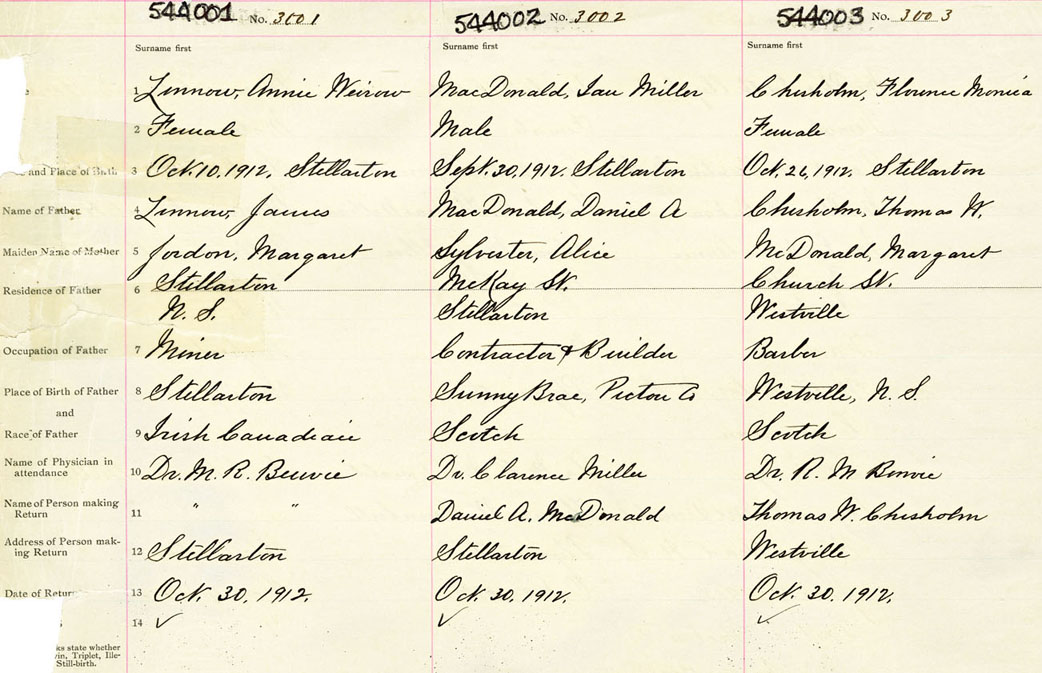 544001 No. 3001
544002 No. 3002
544003 No. 3003
Surname first
Surname first
Surname first
1 Linnow, Annie Weirow
MacDonald, Ian Miller
Chisholm, Florence Monica
2 Female
Male
Female
and Place of Birth 3 Oct. 10, 1912. Stellarton
Sept. 30, 1912. Stellarton
Oct. 26, 1912. Stellarton
Name of Father 4 Linnow, James
MacDonald, Daniel A
Chisholm, Thomas W.
Maiden Name of Mother 5 Jordon, Margaret
Sylvester, Alice
McDonald, Margaret
Residence of Father 6 Stellarton
N. S.
McKay St.
Stellarton
Church St.
Westville
Occupation of Father 7 Miner
Contractor & Builder
Barber
Place of Birth of Father 8 Stellarton
Sunny Brae, Pictou Co
Westville, N. S.
and
Race of Father 9 Irish Canadian
Scotch
Scotch
Name of Physician in
attendance 10 Dr. M. R.
Dr. Clarence Miller
Dr. R. M Bonvie
Name of Person making
Return 11 " "
Daniel A. McDonald
Thomas W. Chisholm
Address of Person mak-
ing Return 12 Stellarton
Stellarton
Westville
Date of Return 13 Oct. 30. 1912.
Oct. 30. 1912.
Oct 30. 1912.
14 ✓
✓
✓
ks state whether
in, Triplet, Ille-
Still-birth.